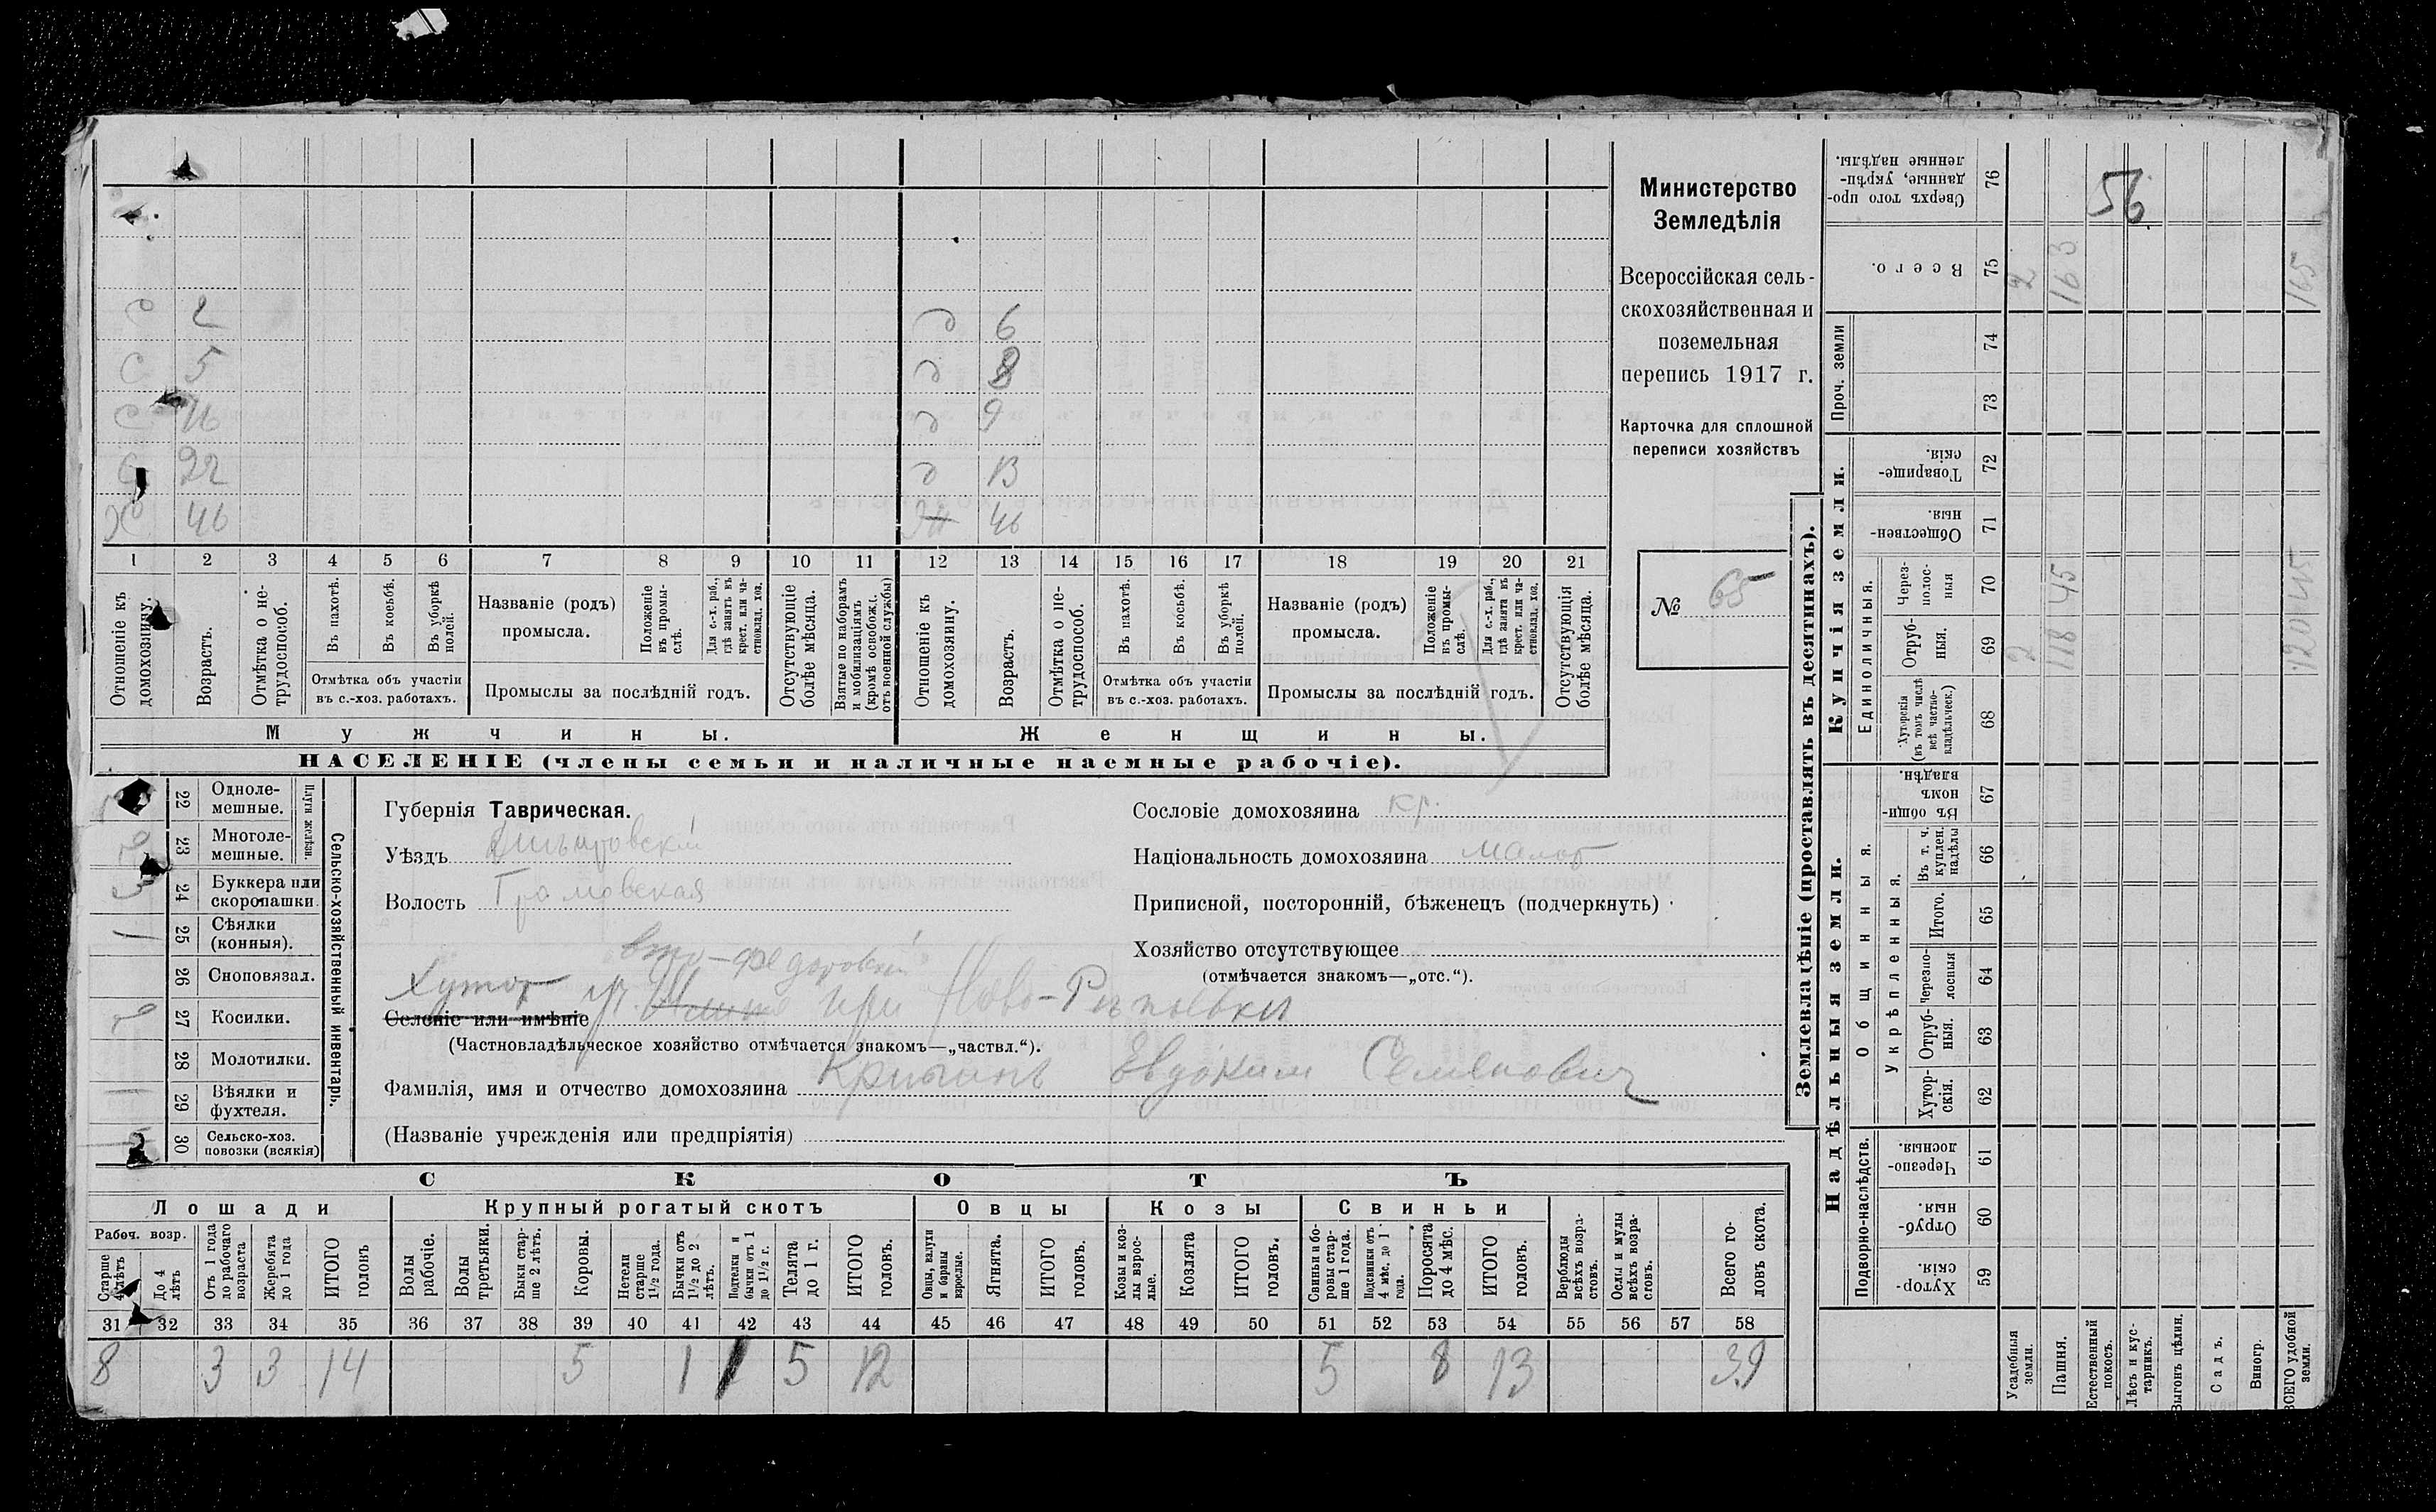 Министерство
Земледѣлія
Всероссійская сель-
скохозяйственная и
поземельная
перепись 1917 г.
Карточка для сплошной
переписи хозяйствъ
№ 65
с 2
с 5
с 16
с 22
х 46
д 6
д 8
д 9
д 13
ж 46
1 2 3 4 5 6 7 8 9 10 11 12 13 14 15 16 17 18 19 20 21
Отношеніе къ домохозяину.
Возрастъ.
Отмѣтка о не-трудоспособ.
Въ пахотѣ.
Въ косьбѣ.
Въ уборкѣ полей.
Отмѣтка объ участіи
въ с.-хоз. работахъ.
Названіе (родъ)
промысла.
Положеніе въ промы-слѣ.
Для с.-х. раб., гдѣ занятъ въ крест. или ча-стновлад. хоз.
Промыслы за послѣдній годъ.
Отсутствующіе болѣе мѣсяца.
Взятые по наборамъ и мобилизаціямъ (кромѣ освобож. отъ военной службы)
Отношеніе къ домохозяину.
Возрастъ.
Отмѣтка о не-трудоспособ.
Въ пахотѣ.
Въ косьбѣ.
Въ уборкѣ полей.
Отмѣтка объ участіи
въ с.-хоз. работахъ.
Названіе (родъ)
промысла.
Положеніе въ промы-слѣ.
Для с.-х. раб., гдѣ занята въ крест. или ча-стновлад. хоз.
Промыслы за послѣдній годъ.
Отсутствующія болѣе мѣсяца.
Мужчины.
Женщины.
НАСЕЛЕНІЕ (члены семьи и наличные наемные рабочіе).
Сельско-хозяйственный инвентарь.
Плуги желѣзн.
22 Одноле-мешные.
23 Многоле-мешные.
24 Буккера или скоропашки.
25 Сѣялки (конныя). 1
26 Сноповязал.
27 Косилки.
28 Молотилки.
29 Вѣялки и фухтеля. 1
30 Сельско-хоз. повозки (всякія)
Губернія Таврическая.
Уѣздъ
Волость
Хутор
при Ново-
Селеніе или имѣніе
(Частновладѣльческое хозяйство отмѣчается знакомъ—„частвл.“).
Фамилія, имя и отчество домохозяина Евдоким Семенович
(Названіе учрежденія или предпріятія)
Сословіе домохозяина кр.
Національность домохозяина малор
Приписной, посторонній, бѣженецъ (подчеркнуть)
Хозяйство отсутствующее
(отмѣчается знакомъ—„отс.“).
СКОТЪ
Лошади
Крупный рогатый скотъ
Овцы
Козы
Свиньи
Рабоч. возр.
Старше 4 лѣтъ
До 4 лѣтъ
Отъ 1 года до рабочаго возраста
Жеребята до 1 года
ИТОГО головъ
Волы рабочіе.
Волы третьяки.
Быки стар-ше 2 лѣтъ.
Коровы.
Нетели старше 1½ года.
Бычки отъ 1½ до 2 лѣтъ.
Подтелки и бычки отъ 1 до 1½ г.
Телята до 1 г.
ИТОГО головъ.
Овцы, валухи и бараны взрослые.
Ягнята.
ИТОГО головъ.
Козы и коз-лы взрос-лые.
Козлята
ИТОГО головъ.
Свиньи и бо-ровы стар-ше 1 года.
Подсвинки отъ 4 мѣс. до 1 года.
Поросята до 4 мѣс.
ИТОГО головъ.
Верблюды всѣхъ возра-стовъ.
Ослы и мулы всѣхъ возра-стовъ.
Всего го-ловъ скота.
31 32 33 34 35 36 37 38 39 40 41 42 43 44 45 46 47 48 49 50 51 52 53 54 55 56 57 58
8 3 3 14 5 1 1 5 12 5 8 13 39
Землевладѣніе (проставлять въ десятинахъ).
Надѣльныя земли.
Купчія земли.
Проч. земли
Подворно-наслѣдств.
Общинныя.
Укрѣпленныя.
Единоличныя.
59 Хутор-скія.
60 Отруб-ныя.
61 Черезпо-лосныя.
62 Хутор-скія.
63 Отруб-ныя.
64 Черезпо-лосныя
65 Итого.
66 Въ т. ч. куплен. надѣлы
67 Въ общи-номъ владѣн.
68 Хуторскія (въ томъ числѣ всѣ частно-владѣльческ.)
69 Отруб-ныя.
70 Через-полос-ныя
71 Обществен-ныя.
72 Товарище-скія.
73
74
75 Всего.
76 Сверхъ того про-данные, укрѣп-ленные надѣлы.
Усадебныя земли. 2 2
Пашня. 118 45 163
Естественный покосъ.
Лѣсъ и кус-тарникъ.
Выгонъ цѣлин.
Садъ.
Виногр.
ВСЕГО удобной земли. 120 45 165
56